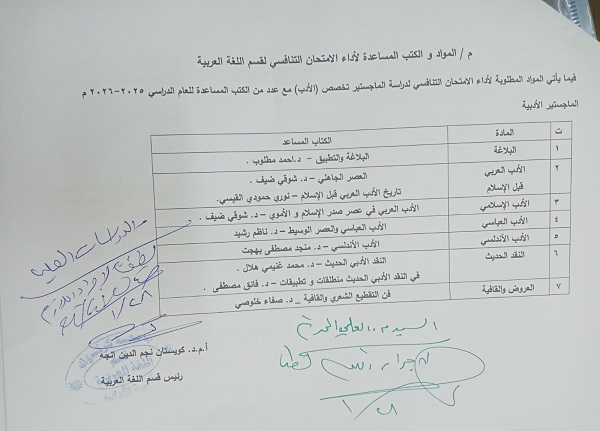 م / المواد و الكتب المساعدة لأداء الامتحان التنافسي لقسم اللغة العربية
فيما يأتي المواد المطلوبة لأداء الامتحان التنافسي لدراسة الماجستير تخصص (الأدب) مع عدد من الكتب المساعدة للعام الدراسي ٢٠٢٥-٢٠٢٦ م
الماجستير الأدبية
ت المادة الكتاب المساعد
١ البلاغة البلاغة والتطبيق – د.احمد مطلوب .
٢ الأدب العربي العصر الجاهلي – د. شوقي ضيف .
قبل الإسلام تاريخ الأدب العربي قبل الإسلام – نوري حمودي القيسي.
٣ الأدب الإسلامي الأدب العربي في عصر صدر الإسلام و الأموي – د. شوقي ضيف .
٤ الأدب العباسي الأدب العباسي والعصر الوسيط – د. ناظم رشيد
٥ الأدب الأندلسي الأدب الأندلسي – د. منجد مصطفى بهجت
٦ النقد الحديث النقد الأدبي الحديث – د. محمد غنيمي هلال .
في النقد الأدبي الحديث منطلقات و تطبيقات – د. فائق مصطفى .
٧ العروض والقافية فن التقطيع الشعري والقافية _ د. صفاء خلوصي
الدراسات العليا
١/٢٨
أ.م.د. كويستان نجم الدين انجه
رئيس قسم اللغة العربية
السيد م. العلمي المحترم
١/٢٨